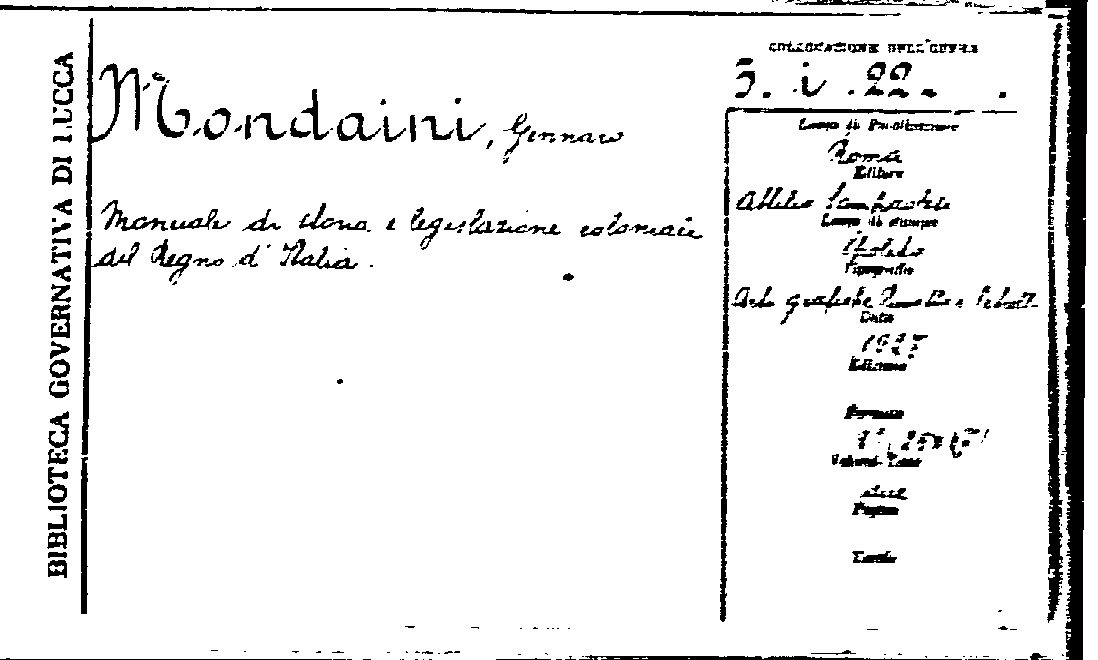 BIBLIOTECA GOVERNATIVA DI LUCCA
Mondaini, Gennaro
Manuale di storia e legislazione coloniale
del Regno d'Italia.
COLLOCAZIONE DELL'OPERA
3. i. 22.
Luogo di Pubblicazione
Roma
Editore
Attilio Sampaolesi
Luogo di stampa
Spoleto
Tipografia
Arti grafiche
Data
1927
Edizione
Formato
8°
Volumi-Tomi
due
Pagine
Tavole